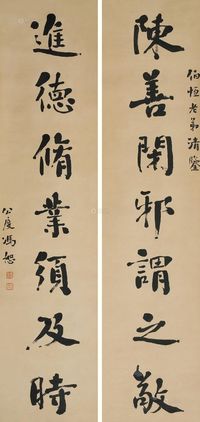 伯恒老弟清鑒
陳善閑邪謂之敬
進德脩業須及時
公度馮恕